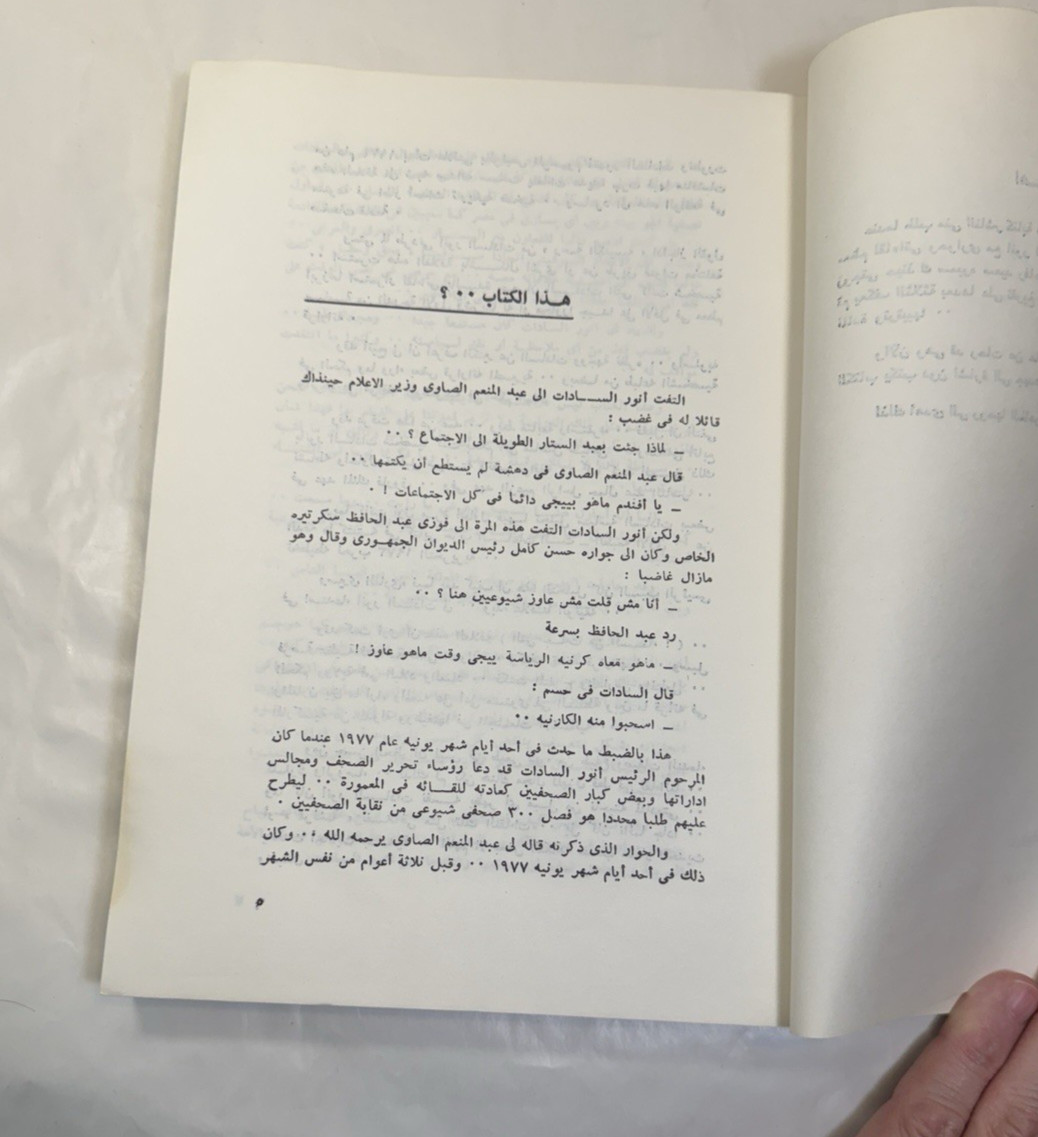 هـذا الكتاب ٠٠ ؟
التفت أنور الســـادات الى عبد المنعم الصاوى وزير الاعلام حينذاك
قائلا له فى غضب :
ــ لماذا جئت بعبد الستار الطويلة الى الاجتماع ؟ ٠٠
قال عبد المنعم الصاوى فى دهشة لم يستطع أن يكتمها ٠٠
ــ يا أفندم ماهو بييجى دائما فى كل الاجتماعات ! ٠
ولكن أنور السادات التفت هذه المرة الى فوزى عبد الحافظ سكرتيره
الخاص وكان الى جواره حسن كامل رئيس الديوان الجمهـورى وقال وهو
مازال غاضبا :
ــ أنا مش قلت مش عاوز شيوعيين هنا ؟ ٠٠
رد عبد الحافظ بسرعة
ــ ماهو معاه كرنيه الرياسة ييجى وقت ماهو عاوز !
قال السادات فى حسم :
ــ اسحبوا منه الكارنيه ٠٠
هذا بالضبط ما حدث فى أحد أيام شهر يونيه عام ١٩٧٧ عندما كان
المرحوم الرئيس أنور السادات قد دعا رؤساء تحرير الصحف ومجالس
اداراتها وبعض كبار الصحفيين كعادته للقـــائه فى المعمورة ٠٠ ليطرح
عليهم طلبا محددا هو فصل ٣٠٠ صحفى شيوعى من نقابة الصحفيين ٠
والحوار الذى ذكرته قاله لى عبد المنعم الصاوى يرحمه الله ٠٠ وكان
ذلك فى أحد أيام شهر يونيه ١٩٧٧ ٠٠ وقبل ثلاثة أعوام من نفس الشهر
٥